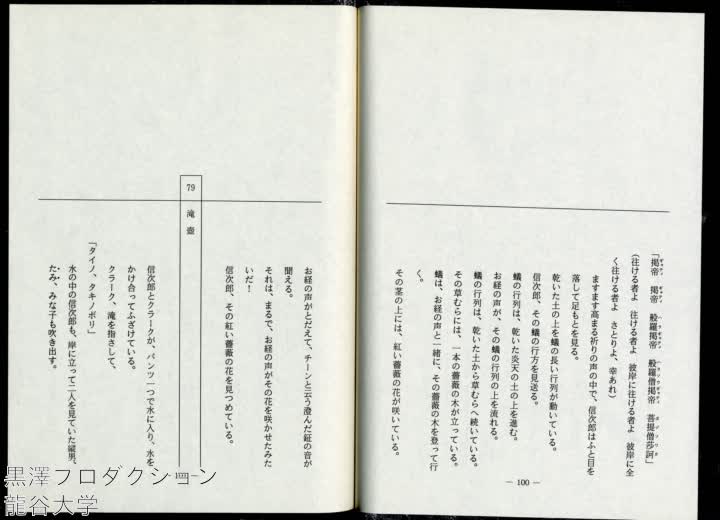 「掲帝　掲帝　般羅掲帝　般羅僧掲帝　菩提僧莎訶」
(往ける者よ　往ける者よ　彼岸に往ける者よ　彼岸に全
く往ける者よ　さとりよ、幸あれ)
ますます高まる祈りの声の中で、信次郎はふと目を
落して足もとを見る。
乾いた土の上を蟻の長い行列が動いている。
信次郎、その蟻の行方を見送る。
蟻の行列は、乾いた炎天の土の上を進む。
お経の声が、その蟻の行列の上を流れる。
蟻の行列は、乾いた土から草むらへ続いている。
その草むらには、一本の薔薇の木が立っている。
蟻は、お経の声と一緒に、その薔薇の木を登って行
く。
その茎の上には、紅い薔薇の花が咲いている。
— 100 —
お経の声がとだえて、チーンと云う澄んだ鉦の音が
聞える。
それは、まるで、お経の声がその花を咲かせたみた
いだ！
信次郎、その紅い薔薇の花を見つめている。
79　滝壺
信次郎とクラークが、パンツ一つで水に入り、水を
かけ合ってふざけている。
クラーク、滝を指さして、
「タイノ、タキノボリ」
水の中の信次郎も、岸に立って二人を見ていた縦男、
たみ、みな子も吹き出す。
黒澤プロダクション
龍谷大学